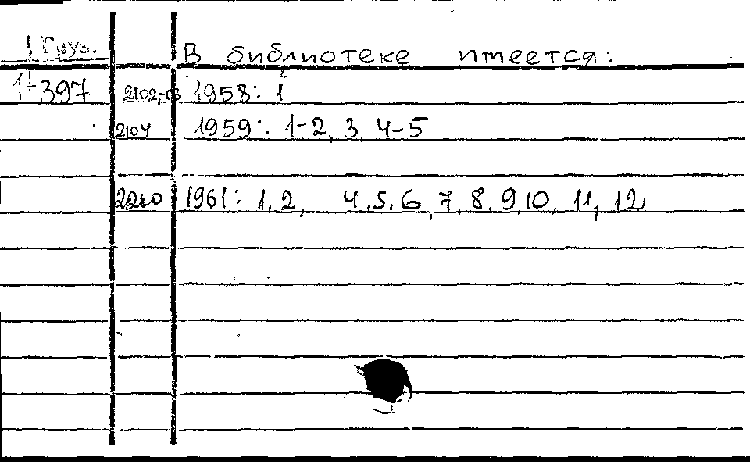 1 Груз. В библиотеке имеется:
1-397 2102,03 1958: 1
2104 1959: 1-2, 3, 4-5
2210 1961: 1, 2, 4, 5, 6, 7, 8, 9, 10, 11, 12